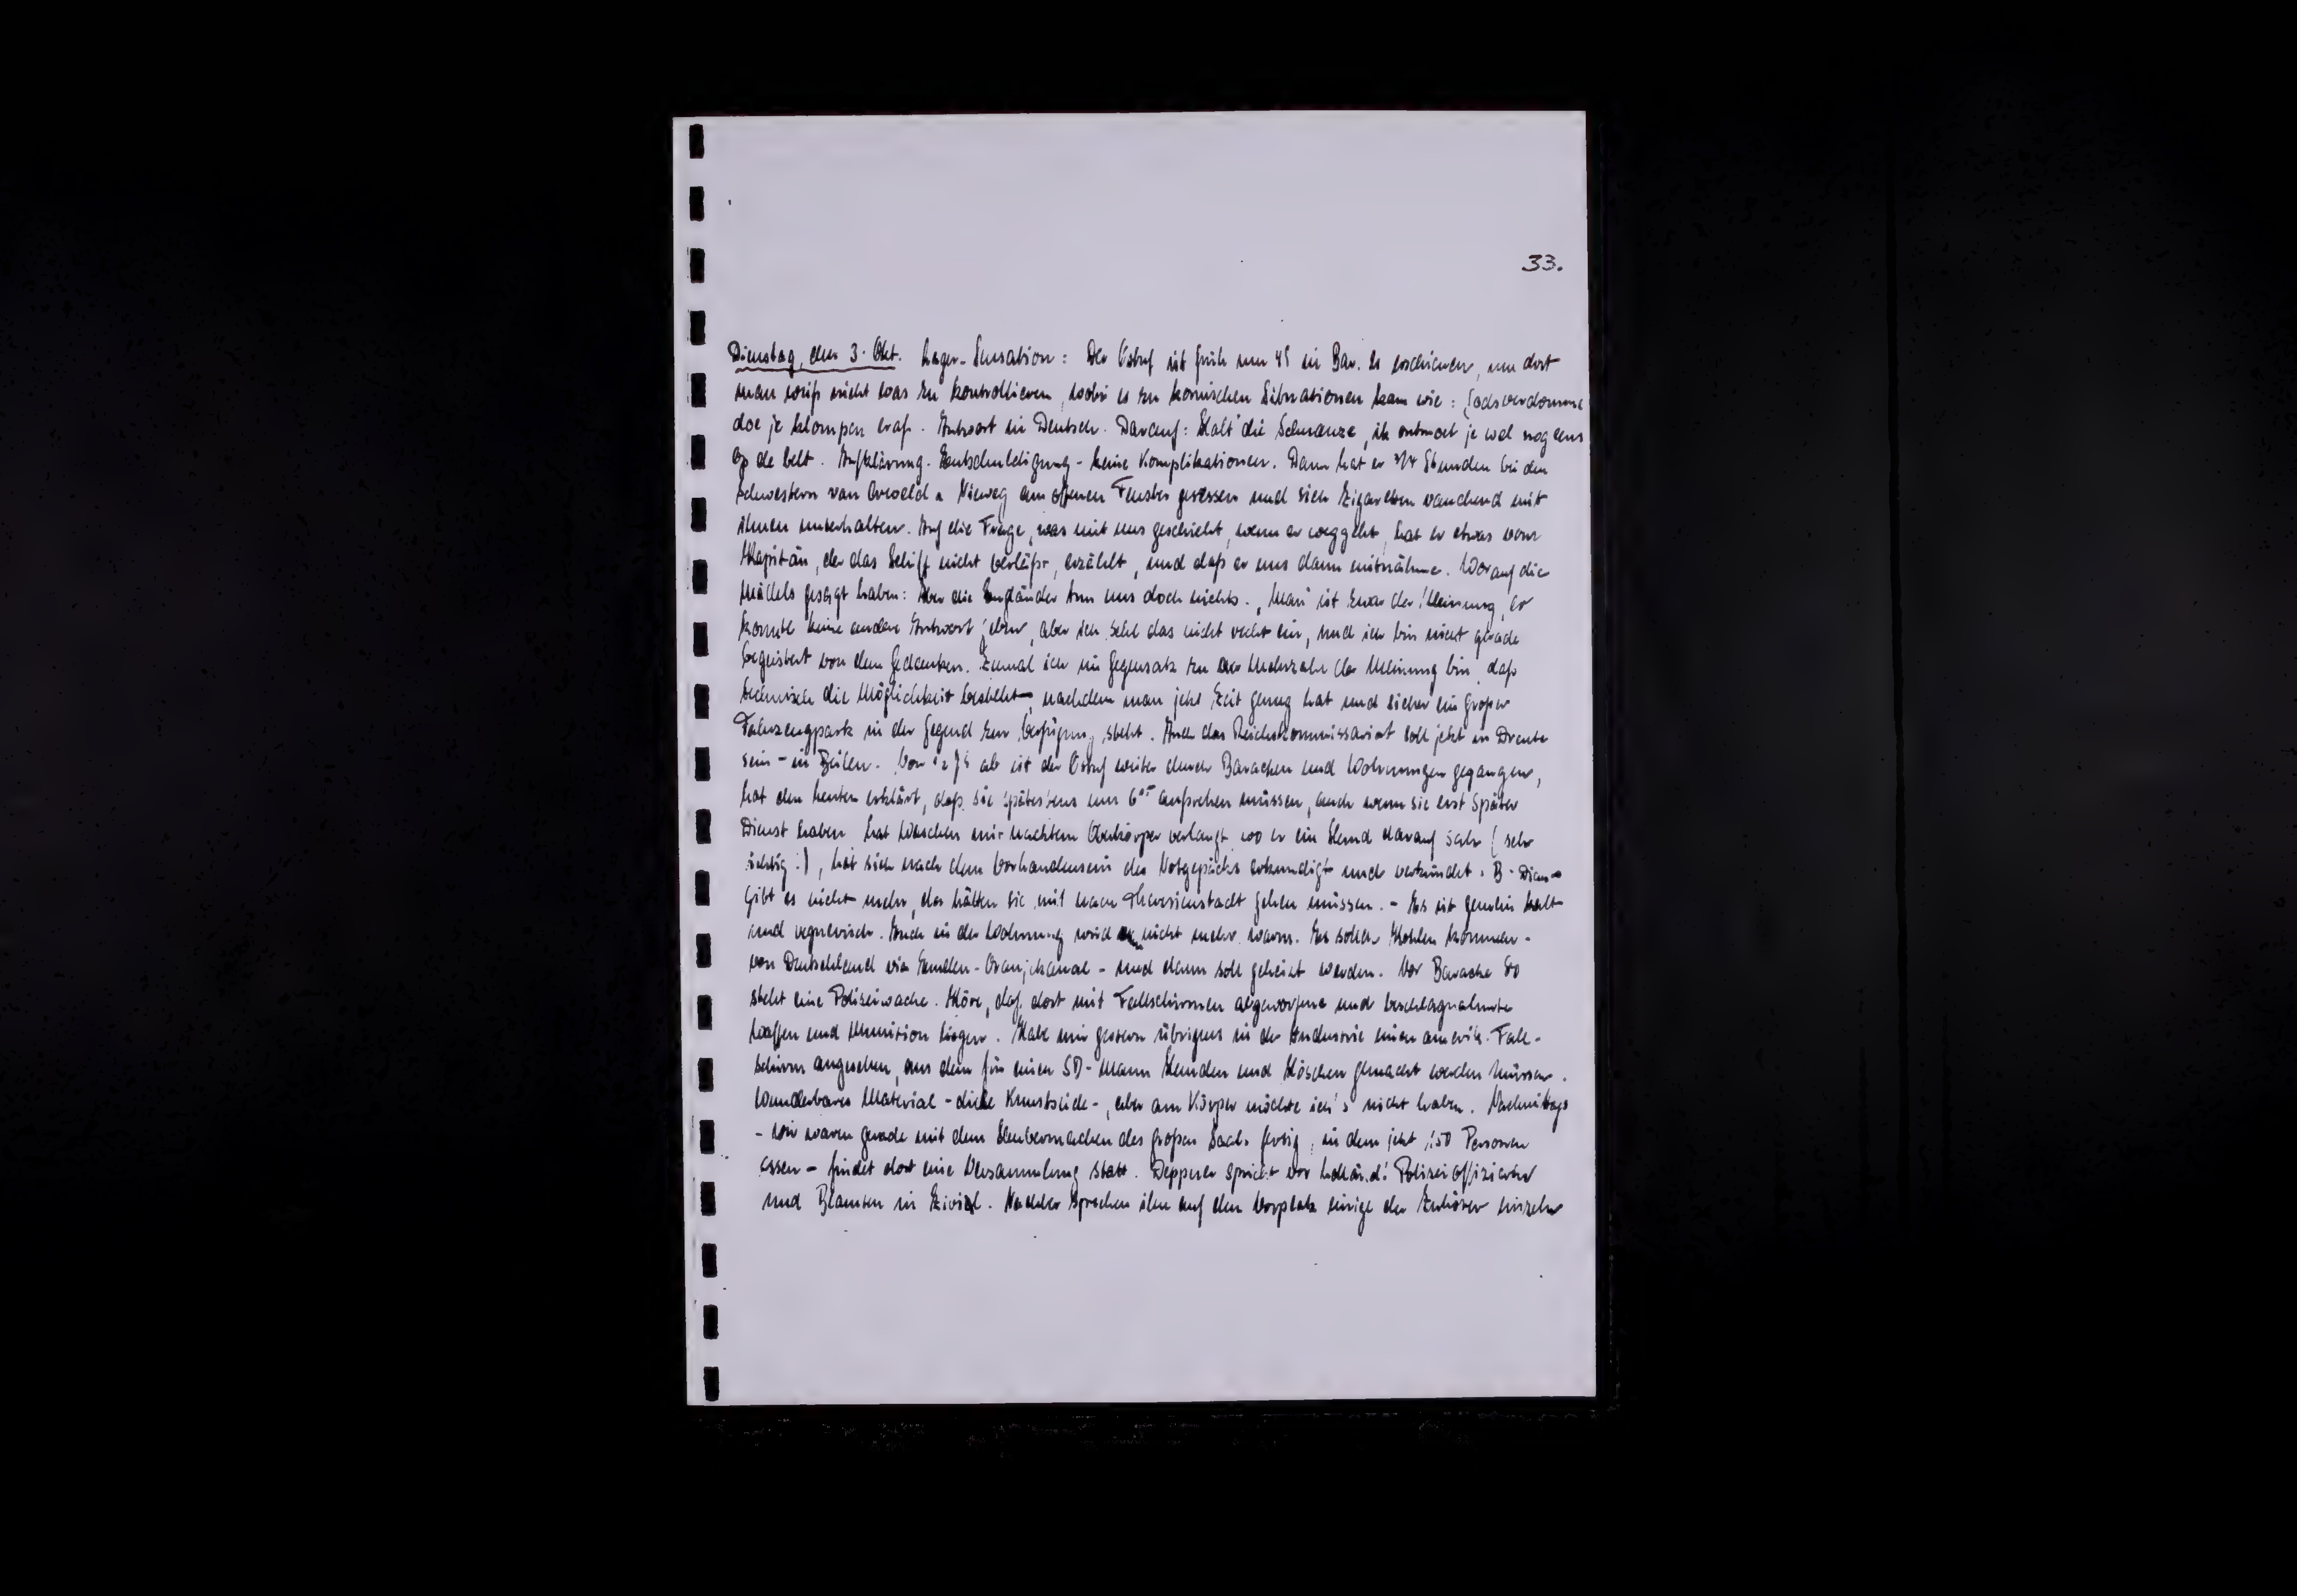 33.
Dienstag, den 3. Okt. Lager-Sensation: Der Ostuf ist früh um 4⁵ in Bar. 21 erschienen, um dort
man weiß nicht was zu kontrollieren, wobei es zu komischen Situationen kam wie: Godverdomme
doe je klompen eraf. Antwort in Deutsch. Darauf: Halt die Schnauze, ik ontmoet je wel nog eens
op de belt. Aufklärung - Entschuldigung - keine Komplikationen. Dann hat er 3/4 Stunden bei den
Schwestern van Gewald u Vieweg am offenen Fenster gesessen und sich Zigaretten rauchend mit
ihnen unterhalten. Auf die Frage, was mit uns geschieht, wenn er weggeht, hat er etwas vom
Kapitän, der das Schiff nicht verläßt, erzählt, und daß er uns dann mitnähme. Worauf die
Mädels gesagt haben: Aber die Engländer tun uns doch nichts. "Man" ist zwar der Meinung, er
konnte keine andere Antwort geben, aber ich sehe das nicht recht ein, und ich bin nicht gerade
begeistert von dem Gedanken. Zumal ich im Gegensatz zu der Mehrzahl der Meinung bin, daß
technisch die Möglichkeit besteht, nachdem man jetzt Zeit genug hat und sicher ein großer
Fahrzeugpark in der Gegend zur Verfügung steht. Auch das Reichskommissariat soll jetzt in Drente
sein - in Beilen. Von ab ist der Ostuf weiter durch Baracken und Wohnungen gegangen,
hat den Leuten erklärt, daß sie spätestens um 6 aufstehen müssen, auch wenn sie erst später
Dienst haben hat Waschen mit nacktem Oberkörper verlangt wo er ein Hemd darauf sah (sehr
richtig!), hat sich nach dem Vorhandensein des Notgepäcks erkundigt und verkündet: B-Dienst
gibt es nicht mehr, da hätten sie mit nach Theresienstadt gehen müssen. - Es ist gemein kalt
und regnerisch. Auch in der Wohnung wird es nicht mehr warm. Es sollen Kohlen kommen -
von Deutschland via Emden-Oranjekanal - und dann soll geheizt werden. Vor Baracke 80
steht eine Polizeiwache. Höre, daß dort mit Fallschirmen abgeworfene und beschlagnahmte
Waffen und Munition liegen. Habe mir gestern übrigens in der Industrie einen amerik. Fall-
schirm angesehen, aus dem für einen SD-Mann Hemden und Höschen gemacht werden müssen.
Wunderbares Material - dicke Kunstseide -, aber am Körper möchte ich's nicht haben. Nachmittags
- wir waren gerade mit dem Saubermachen des großen Saals fertig, in dem jetzt 150 Personen
essen - findet dort eine Versammlung statt. Deppner spricht vor holländ. Polizeioffizieren
und Beamten in Zivil. Nachher sprechen ihn auf dem Vorplatz einige der Zuhörer einzeln